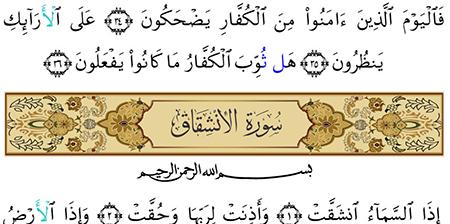 فَٱلْيَوْمَ ٱلَّذِينَ ءَامَنُوا۟ مِنَ ٱلْكُفَّارِ يَضْحَكُونَ ﴿٣٤﴾ عَلَى ٱلْأَرَآئِكِ
يَنظُرُونَ ﴿٣٥﴾ هَلْ ثُوِّبَ ٱلْكُفَّارُ مَا كَانُوا۟ يَفْعَلُونَ ﴿٣٦﴾
سُورَةُ الِانْشِقَاقِ
بسم الله الرحمن الرحيم
إِذَا ٱلسَّمَآءُ ٱنشَقَّتْ ﴿١﴾ وَأَذِنَتْ لِرَبِّهَا وَحُقَّتْ ﴿٢﴾ وَإِذَا ٱلْأَرْضُ